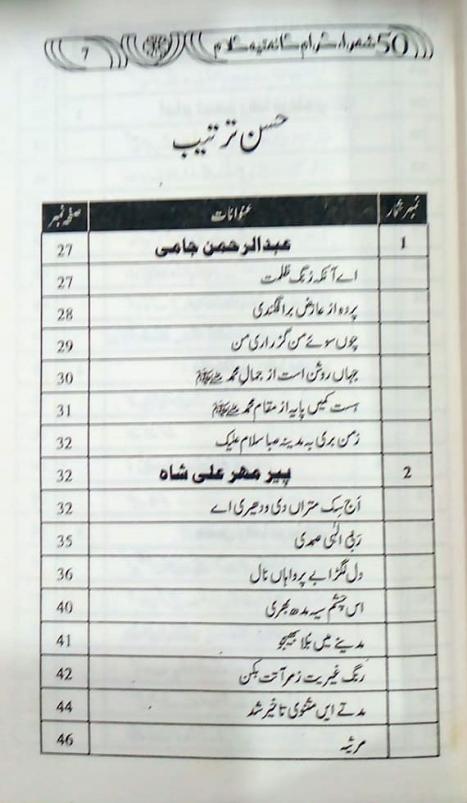 50 شعراء کرام کا نعتیہ کلام 7
حسن ترتیب
نمبر شمار عنوانات صفحہ نمبر
1 عبدالرحمن جامی 27
اے آنکہ زنگ ظلمت 27
پردہ از عارض برافگندی 28
چوں سوئے من گزر اری من 29
جہاں روشن است از جمال محمد ﷺ 30
ہست کمیں پایہ از مقام محمد ﷺ 31
زمن بری بہ مدینہ صبا سلام علیک 32
2 پیر مہر علی شاہ 32
اَج سِک متراں دی ودھیری اے 32
ربّی الٰہی صمدی 35
دل لگڑا بے پرواہاں نال 36
اس چشم سیہ مدھ بھری 40
مدینے میں بُلا بھیجو 41
رنگ غیریت زمرآتت بکن 42
مدتے ایں مثنوی تاخیر شد 44
مرثیہ 46